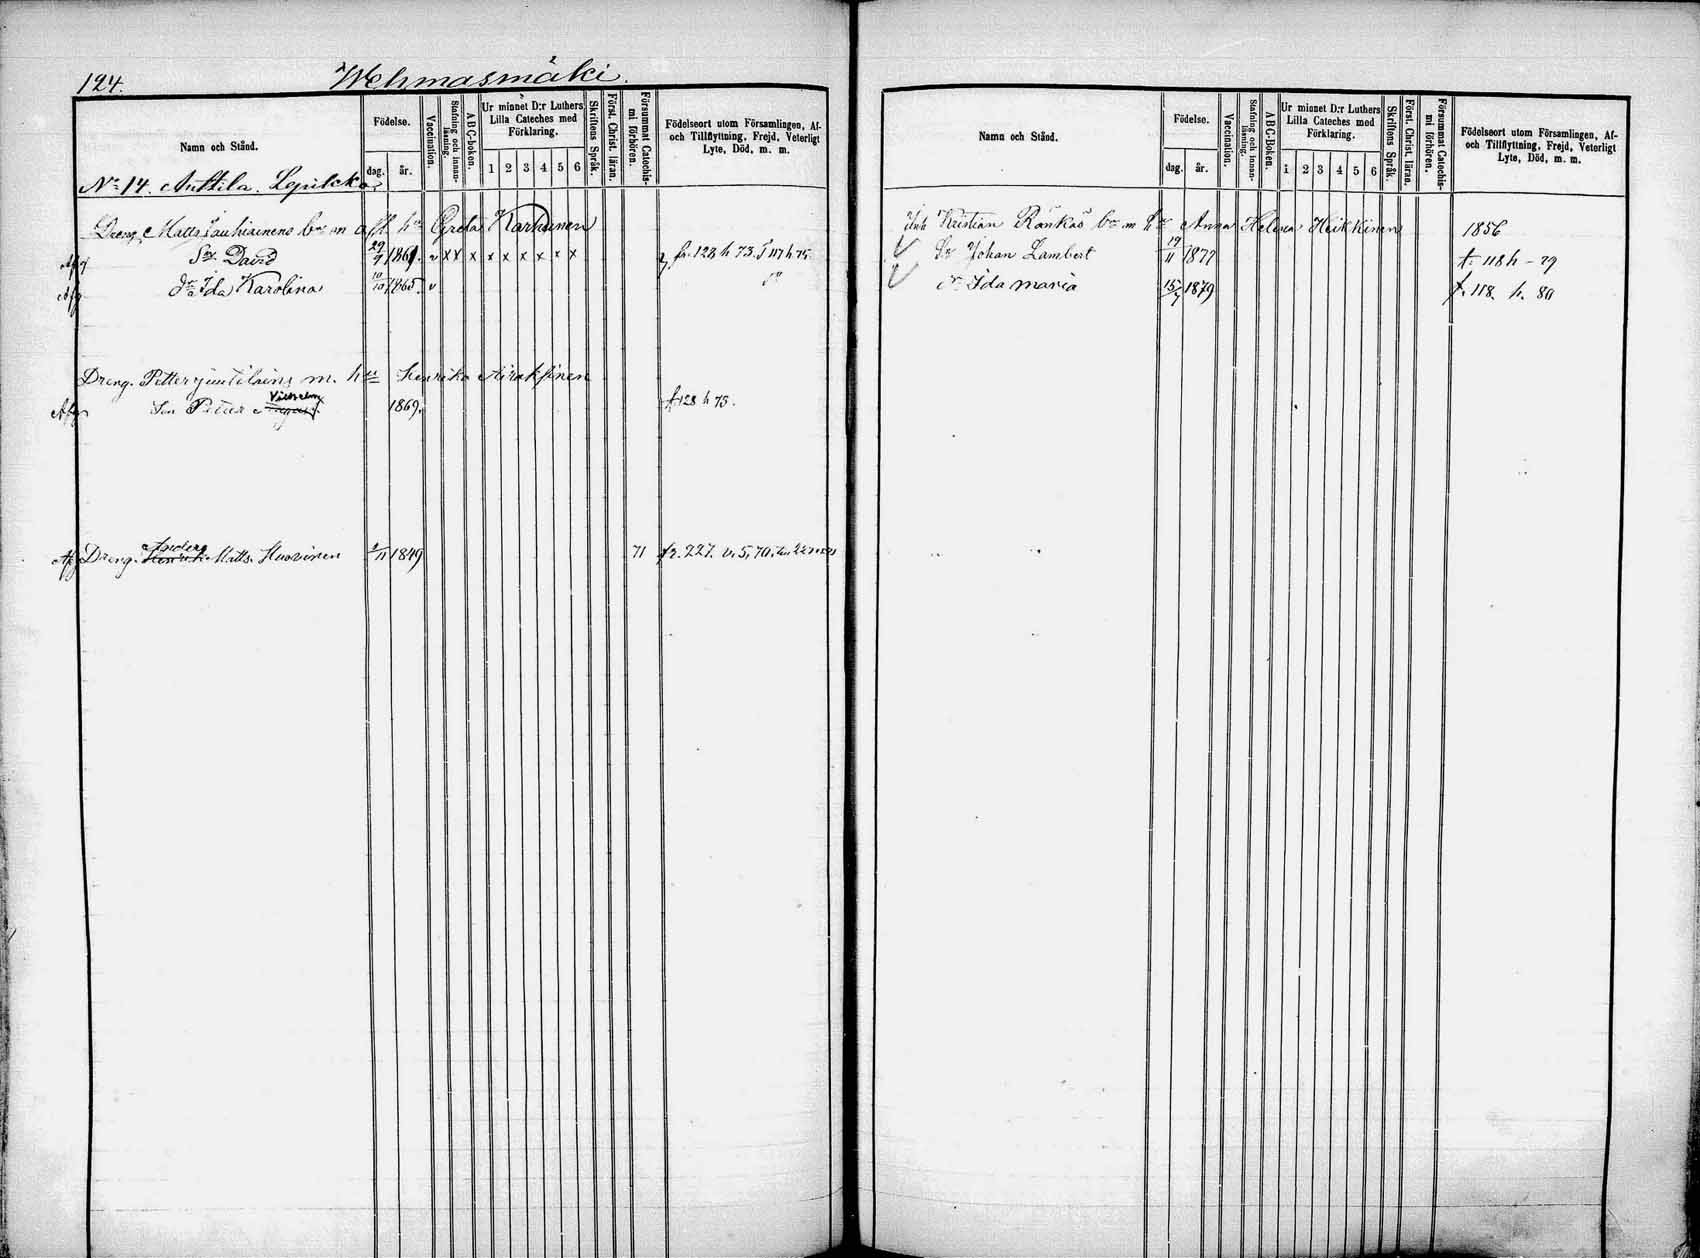 124. Wehmasmäki.
Namn och Stånd.
Födelse.
dag. år.
Vaccination.
Stafning och innanläsning.
ABC-boken.
Ur minnet D:r Luthers Lilla Cateches med Förklaring.
1 2 3 4 5 6
Skriftens Språk.
Först. Christ. läran.
Försummat Catechismi förhören.
Födelseort utom Församlingen, Af- och Tillflyttning, Frejd, Veterligt Lyte, Död, m. m.
No 14. Anttila
Dreng Matts bn m afl. hu Greta Karhunen
Afg Sn David 29/7 1861. v x x x x x x x x x fr. 128 h 73. T 117 h 75.
Afg dr Ida Karolina 10/10 1865. v do
Dreng. Petter m. hu Henrika Airaksinen
Afg Son Petter Vilhelm 1869. f. 128 h 75.
Afg Dreng. Anders Matts. Huovinen /11 1849 71 fr. 227. v. 5, 70.
Namn och Stånd.
Födelse.
dag. år.
Vaccination.
Stafning och innanläsning.
ABC-Boken.
Ur minnet D:r Luthers Lilla Cateches med Förklaring.
1 2 3 4 5 6
Skriftens Språk.
Först. Christ. läran.
Försummat Catechismi förhören.
Födelseort utom Församlingen, Af- och Tillflyttning, Frejd, Veterligt Lyte, Död, m. m.
Inh Kristian Rönkäs bn m hu Anna Helena Heikkinen 1856
Sn Johan Lambert 19/11 1877 f. 118 h - 79
dr Ida Maria 15/7 1879 f. 118. h. 80